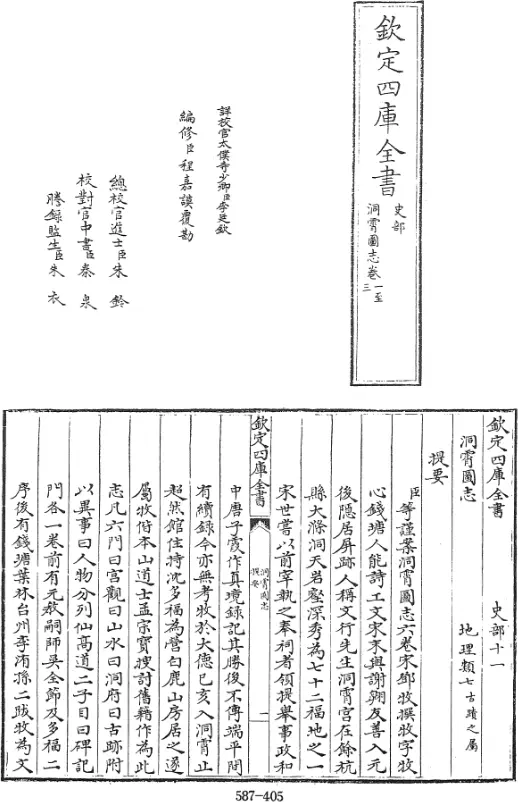 欽定四庫全書
史部
洞霄圖志卷一至三
詳校官太僕寺少卿臣李廷欽
編修臣程嘉謨覆勘
總校官進士臣朱鈐
校對官中書臣秦泉
謄錄監生臣朱衣
欽定四庫全書 史部十一
洞霄圖志 地理類七古蹟之屬
提要
臣等謹案洞霄圖志六卷宋鄧牧撰牧字牧
心錢塘人能詩工文宋末與謝翱友善入元
後隱居屏跡人稱文行先生洞霄宮在餘杭
縣大滌洞天岩壑深秀為七十二福地之一
宋世嘗以前宰執之奉祠者領提舉事政和
欽定四庫全書
洞霄圖志
提要
一
中唐子霞作真境錄記其勝後不傳端平間
有續錄今亦無考牧於大德己亥入洞霄止
超然館住持沈多福為營白鹿山房居之遂
屬牧偕本山道士孟宗寳搜討舊籍作為此
志凡六門曰宮觀曰山水曰洞府曰古跡附
以異事曰人物分列仙高道二子目曰碑記
門各一卷前有元教嗣師吳全節及多福二
序後有錢塘葉林台州李洧孫二跋牧為文
587-405